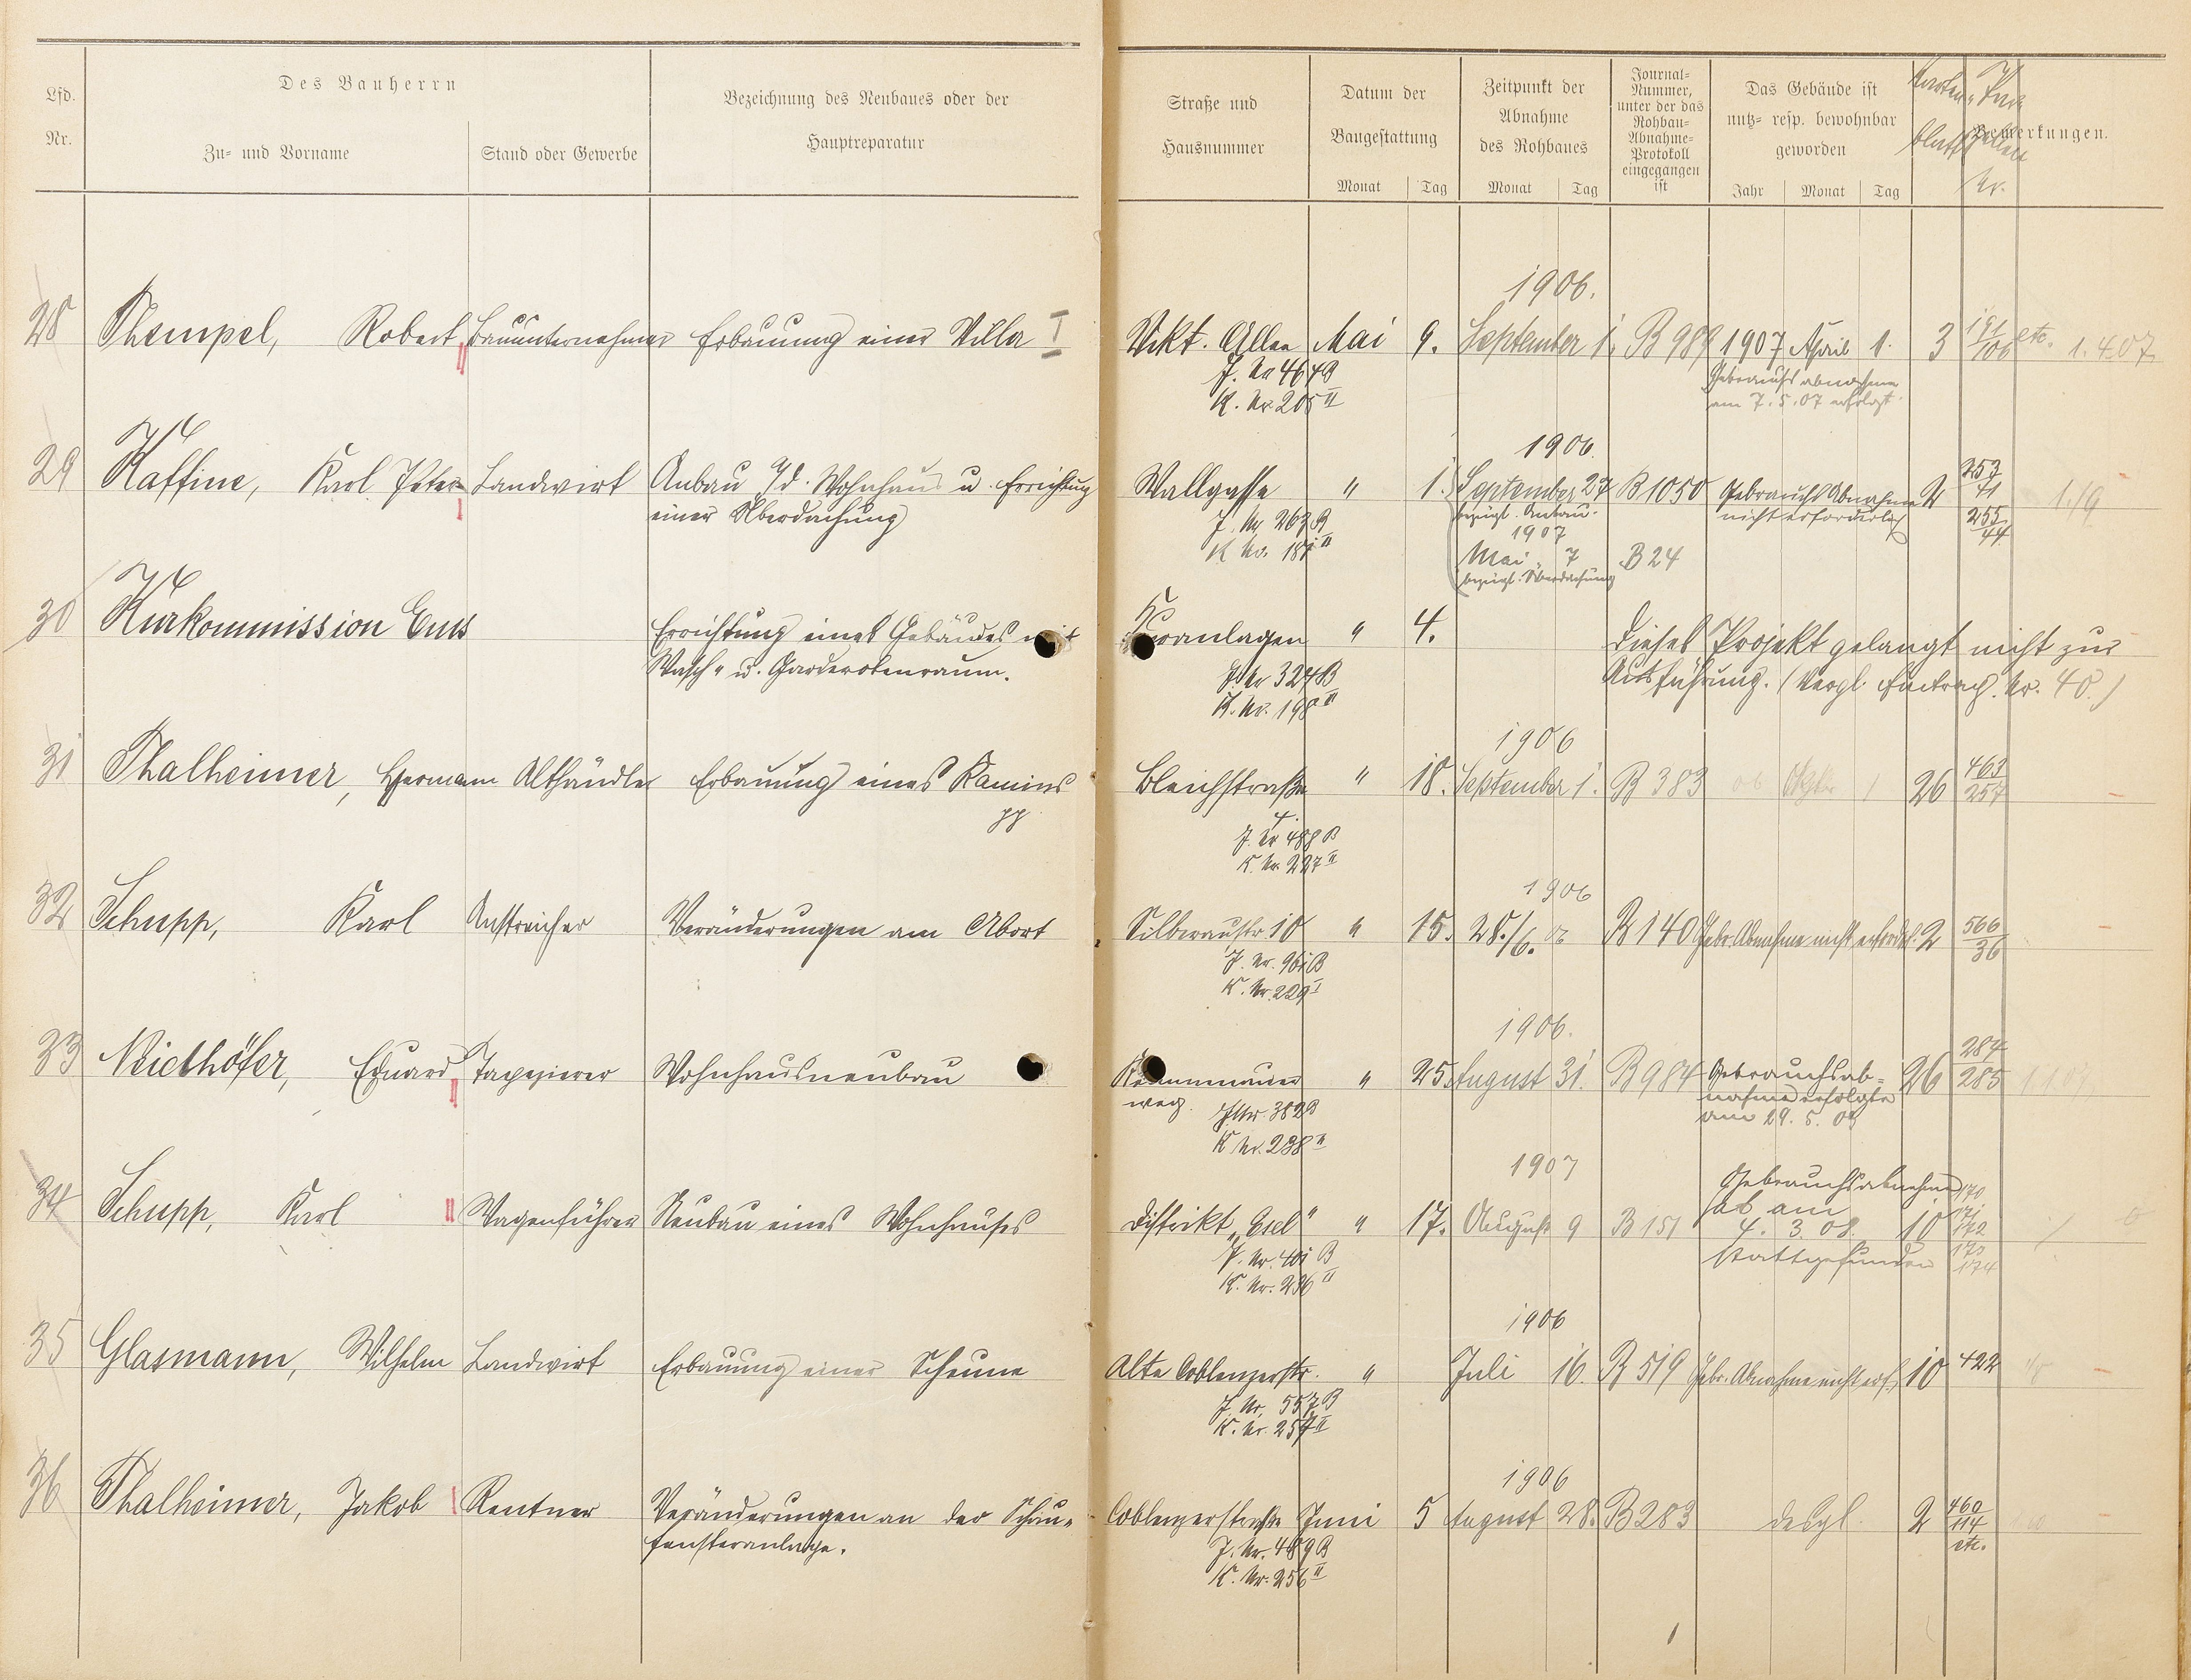 Lfd. Nr.
Des Bauherrn
Zu- und Vorname
Stand oder Gewerbe
Bezeichnung des Neubaues oder der Hauptreparatur
Straße und Hausnummer
Datum der Baugestattung
Monat Tag
Zeitpunkt der Abnahme des Rohbaues
Monat Tag
Journal-Nummer, unter der das Rohbau-Abnahme-Protokoll eingegangen ist
Das Gebäude ist nutz- resp. bewohnbar geworden
Jahr Monat Tag
Karten-blatt
Par-zellen Nr.
Bemerkungen.
1906.
28 Thempel, Robert Bauunternehmer Erbauung einer Villa I Vikt. Allee Mai 9. September 1. B 989 1907 April 1. 3 191/106 etc. 1.4.07.
J. Nr 464 B
K. Nr. 205 II
Gebrauchsabnahme
am 7.5.07 erfolgt.
1906.
29 Kaffine, Karl Peter Landwirt Anbau a/d. Wohnhaus u. Errichtung Wallgasse " 1. September 27 B 1050 Gebrauchs Abnahme 2 253/71
einer Überdachung
bezügl. Anbau.
nicht erforderlich
255/44
1./9
J. Nr 263 B
K Nr. 187 II
1907
Mai 7 B 24
bezügl. Überdachung
30 Kurkommission Ems Errichtung eines Gebäudes mit Kuranlagen " 4. Dieses Projekt gelangt nicht zur
Wasch- u. Garderobenraum. Ausführung. (Vergl. Eintrag. Nr. 40.)
J Nr 324 B
K. Nr. 198 II
1906
31 Thalheimer, Hermann Althändler Erbauung eines Kamins Bleichstraße " 18. September 1. B 383 06 Oktbr 1 26 463/257 –
pp
J. Nr 488 B
K. Nr. 227 II
1906
32 Schupp, Karl Anstreicher Veränderungen am Abort Silberaustr. 10 " 15. 28./6. 06 B 140 Gebr. Abnahme nicht erfordl. 2 566/36 –
J. Nr. 961 B
K. Nr. 229 I
1906.
33 Niethöfer, Eduard Tapezierer Wohnhausneubau " 25. August 31. B 984 Gebrauchsab- 26 284
weg.
nahme erfolgte
285
am 29. 5. 08
J Nr. 382 B
K Nr. 238 II
1907
34 Schupp, Karl Wagenführer Neubau eines Wohnhauses Distrikt „Esel" " 17. August 9 B 151 Gebrauchsabnahme
hab am
4. 3. 08. 10
stattgefunden
170
171
172
173
174
J. Nr. 401 B
K. Nr. 236 II
1906
35 Glasmann, Wilhelm Landwirt Erbauung einer Scheune Alte Coblenzerstr. " Juli 16. B 519 Gebr. Abnahme nicht erf. 10 422 –
J. Nr. 557 B
K. Nr. 257 II
1906
36 Thalheimer, Jakob Rentner Veränderungen an der Schau- Coblenzerstraße Juni 5 August 28. B 283 desgl. 2 460/114
fensteranlage.
etc.
J. Nr. 489 B
K. Nr. 256 II